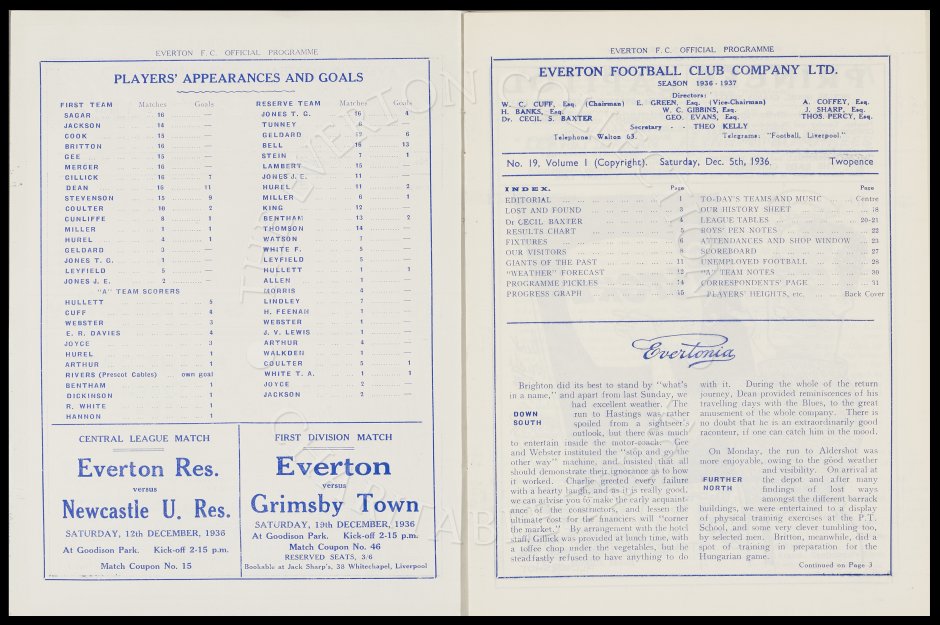 EVERTON F.C. OFFICIAL PROGRAMME
PLAYERS' APPEARANCES AND GOALS
FIRST TEAM Matches Goals
SAGAR 16 —
JACKSON 14 —
COOK 15 —
BRITTON 16 —
GEE 15 —
MERCER 16 —
GILLICK 16 7
DEAN 15 11
STEVENSON 15 9
COULTER 10 2
CUNLIFFE 8 1
MILLER 1 1
HUREL 4 1
GELDARD 3 —
JONES T. G. 1 —
LEYFIELD 5 —
JONES J. E. 2 —
"A" TEAM SCORERS
HULLETT 5
CUFF 4
WEBSTER 3
E. R. DAVIES 4
JOYCE 3
HUREL 1
ARTHUR 1
RIVERS (Prescot Cables) own goal
BENTHAM 1
DICKINSON 1
R. WHITE 1
HANNON 1
RESERVE TEAM Matches Goals
JONES T. G. 16 4
TUNNEY 6 —
GELDARD 6
BELL 16 13
STEIN 7 1
LAMBERT 15 —
JONES J. E. 11 —
HUREL 11 2
MILLER 6 1
KING 12 —
BENTHAM 13 2
THOMSON 14 —
WATSON 7 —
WHITE F. 5 —
LEYFIELD 5 —
HULLETT 1 1
ALLEN 1 —
MORRIS 4 —
LINDLEY 7 —
H. FEENAH 1 —
WEBSTER 1 —
J. V. LEWIS 1 —
ARTHUR 4 —
WALKDEN 1 —
COULTER 5 1
WHITE T. A. 1 1
JOYCE 2 —
JACKSON 2 —
CENTRAL LEAGUE MATCH
Everton Res.
versus
Newcastle U. Res.
SATURDAY, 12th DECEMBER, 1936
At Goodison Park. Kick-off 2-15 p.m.
Match Coupon No. 15
FIRST DIVISION MATCH
Everton
versus
Grimsby Town
SATURDAY, 19th DECEMBER, 1936
At Goodison Park. Kick-off 2-15 p.m.
Match Coupon No. 46
RESERVED SEATS, 3/6
Bookable at Jack Sharp's, 38 Whitechapel, Liverpool
EVERTON F.C. OFFICIAL PROGRAMME
EVERTON FOOTBALL CLUB COMPANY LTD.
SEASON 1936-1937
Directors:
W. C. CUFF, Esq. (Chairman) E. GREEN, Esq. (Vice-Chairman) A. COFFEY, Esq.
H. BANKS, Esq. W. C. GIBBINS, Esq. J. SHARP, Esq.
Dr. CECIL S. BAXTER GEO. EVANS, Esq. THOS. PERCY, Esq.
Secretary - - THEO KELLY
Telephone: Walton 63. Telegrams: "Football, Liverpool."
No. 19, Volume 1 (Copyright). Saturday, Dec. 5th, 1936. Twopence
INDEX. Page
EDITORIAL 1
LOST AND FOUND 3
Dr CECIL BAXTER 4
RESULTS CHART 5
FIXTURES 6
OUR VISITORS 8
GIANTS OF THE PAST 11
"WEATHER" FORECAST 12
PROGRAMME PICKLES 14
PROGRESS GRAPH 15
Page
TO-DAY'S TEAMS AND MUSIC Centre
OUR HISTORY SHEET 18
LEAGUE TABLES 20-21
BOYS' PEN NOTES 22
ATTENDANCES AND SHOP WINDOW 23
SCOREBOARD 27
UNEMPLOYED FOOTBALL 28
"A" TEAM NOTES 30
CORRESPONDENTS' PAGE 31
PLAYERS' HEIGHTS, etc. Back Cover
Evertonia
Brighton did its best to stand by "what's
in a name," and apart from last Sunday, we
had excellent weather. The
DOWN SOUTH
run to Hastings was rather
spoiled from a sightseer's
outlook, but there was much
to entertain inside the motor-coach. Gee
and Webster instituted the "stop and go the
other way" machine, and insisted that all
should demonstrate their ignorance as to how
it worked. Charlie greeted every failure
with a hearty laugh, and as it is really good,
we can advise you to make the early acquaint-
ance of the constructors, and lessen the
ultimate cost for the financiers will "corner
the market." By arrangement with the hotel
staff, Gillick was provided at lunch time, with
a toffee chop under the vegetables, but he
steadfastly refused to have anything to do
with it. During the whole of the return
journey, Dean provided reminiscences of his
travelling days with the Blues, to the great
amusement of the whole company. There is
no doubt that he is an extraordinarily good
raconteur, if one can catch him in the mood.
On Monday, the run to Aldershot was
more enjoyable, owing to the good weather
and visibility. On arrival at
FURTHER NORTH
the depot and after many
findings of lost ways
amongst the different barrack
buildings, we were entertained to a display
of physical training exercises at the P.T.
School, and some very clever tumbling too,
by selected men. Britton, meanwhile, did a
spot of training in preparation for the
Hungarian game.
Continued on Page 3